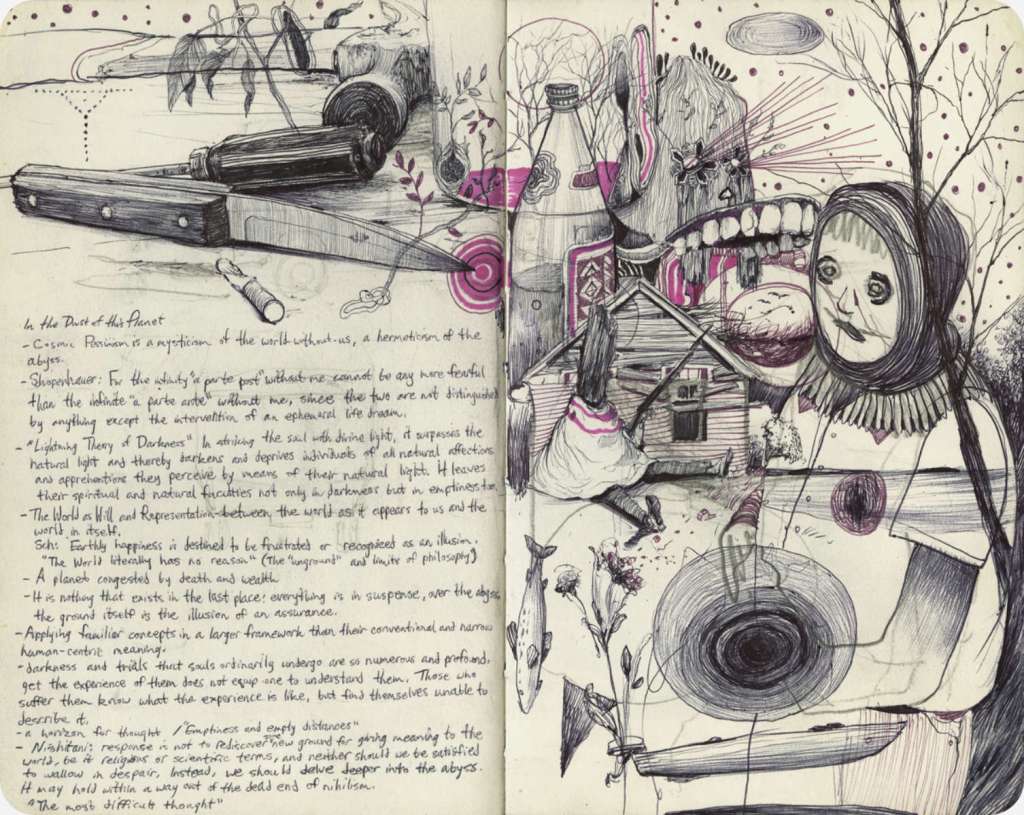 In the Dust of this Planet
- Cosmic Pessimism is a mysticism of the world-without-us, a hermeticism of the
abyss.
- Shopenhauer: For the infinity "a parte post" without me cannot be any more fearful
than the infinite "a parte ante" without me, since the two are not distinguished
by anything except the intervention of an ephemeral life dream.
- "Lightning Theory of Darkness" In striking the soul with divine light, it surpasses the
natural light and thereby darkens and deprives individuals of all natural affections
and apprehentions they perceive by means of their natural light. It leaves
their spiritual and natural faculties not only in darkness but in emptiness too.
- The World as Will and Representation - between the world as it appears to us and the
world in itself.
Sch: Earthly happiness is destined to be frustrated or recognized as an illusion.
"The World literally has no reason" (The "unground" and limits of philosophy)
- A planet congested by death and wealth
- It is nothing that exists in the last place: everything is in suspense, over the abyss,
the ground itself is the illusion of an assurance.
- Applying familiar concepts in a larger framework than their conventional and narrow
human-centric meaning.
- darkness and trials that souls ordinarily undergo are so numerous and profound,
yet the experience of them does not equip one to understand them. Those who
suffer them know what the experience is like, but find themselves unable to
describe it.
- a horizon for thought / "Emptiness and empty distances"
- Nishitani: response is not to rediscover new ground for giving meaning to the
world, be it religious or scientific terms, and neither should we be satisfied
to wallow in despair, Instead, we should delve deeper into the abyss.
It may hold within a way out of the dead end of nihilism.
"The most difficult thought"